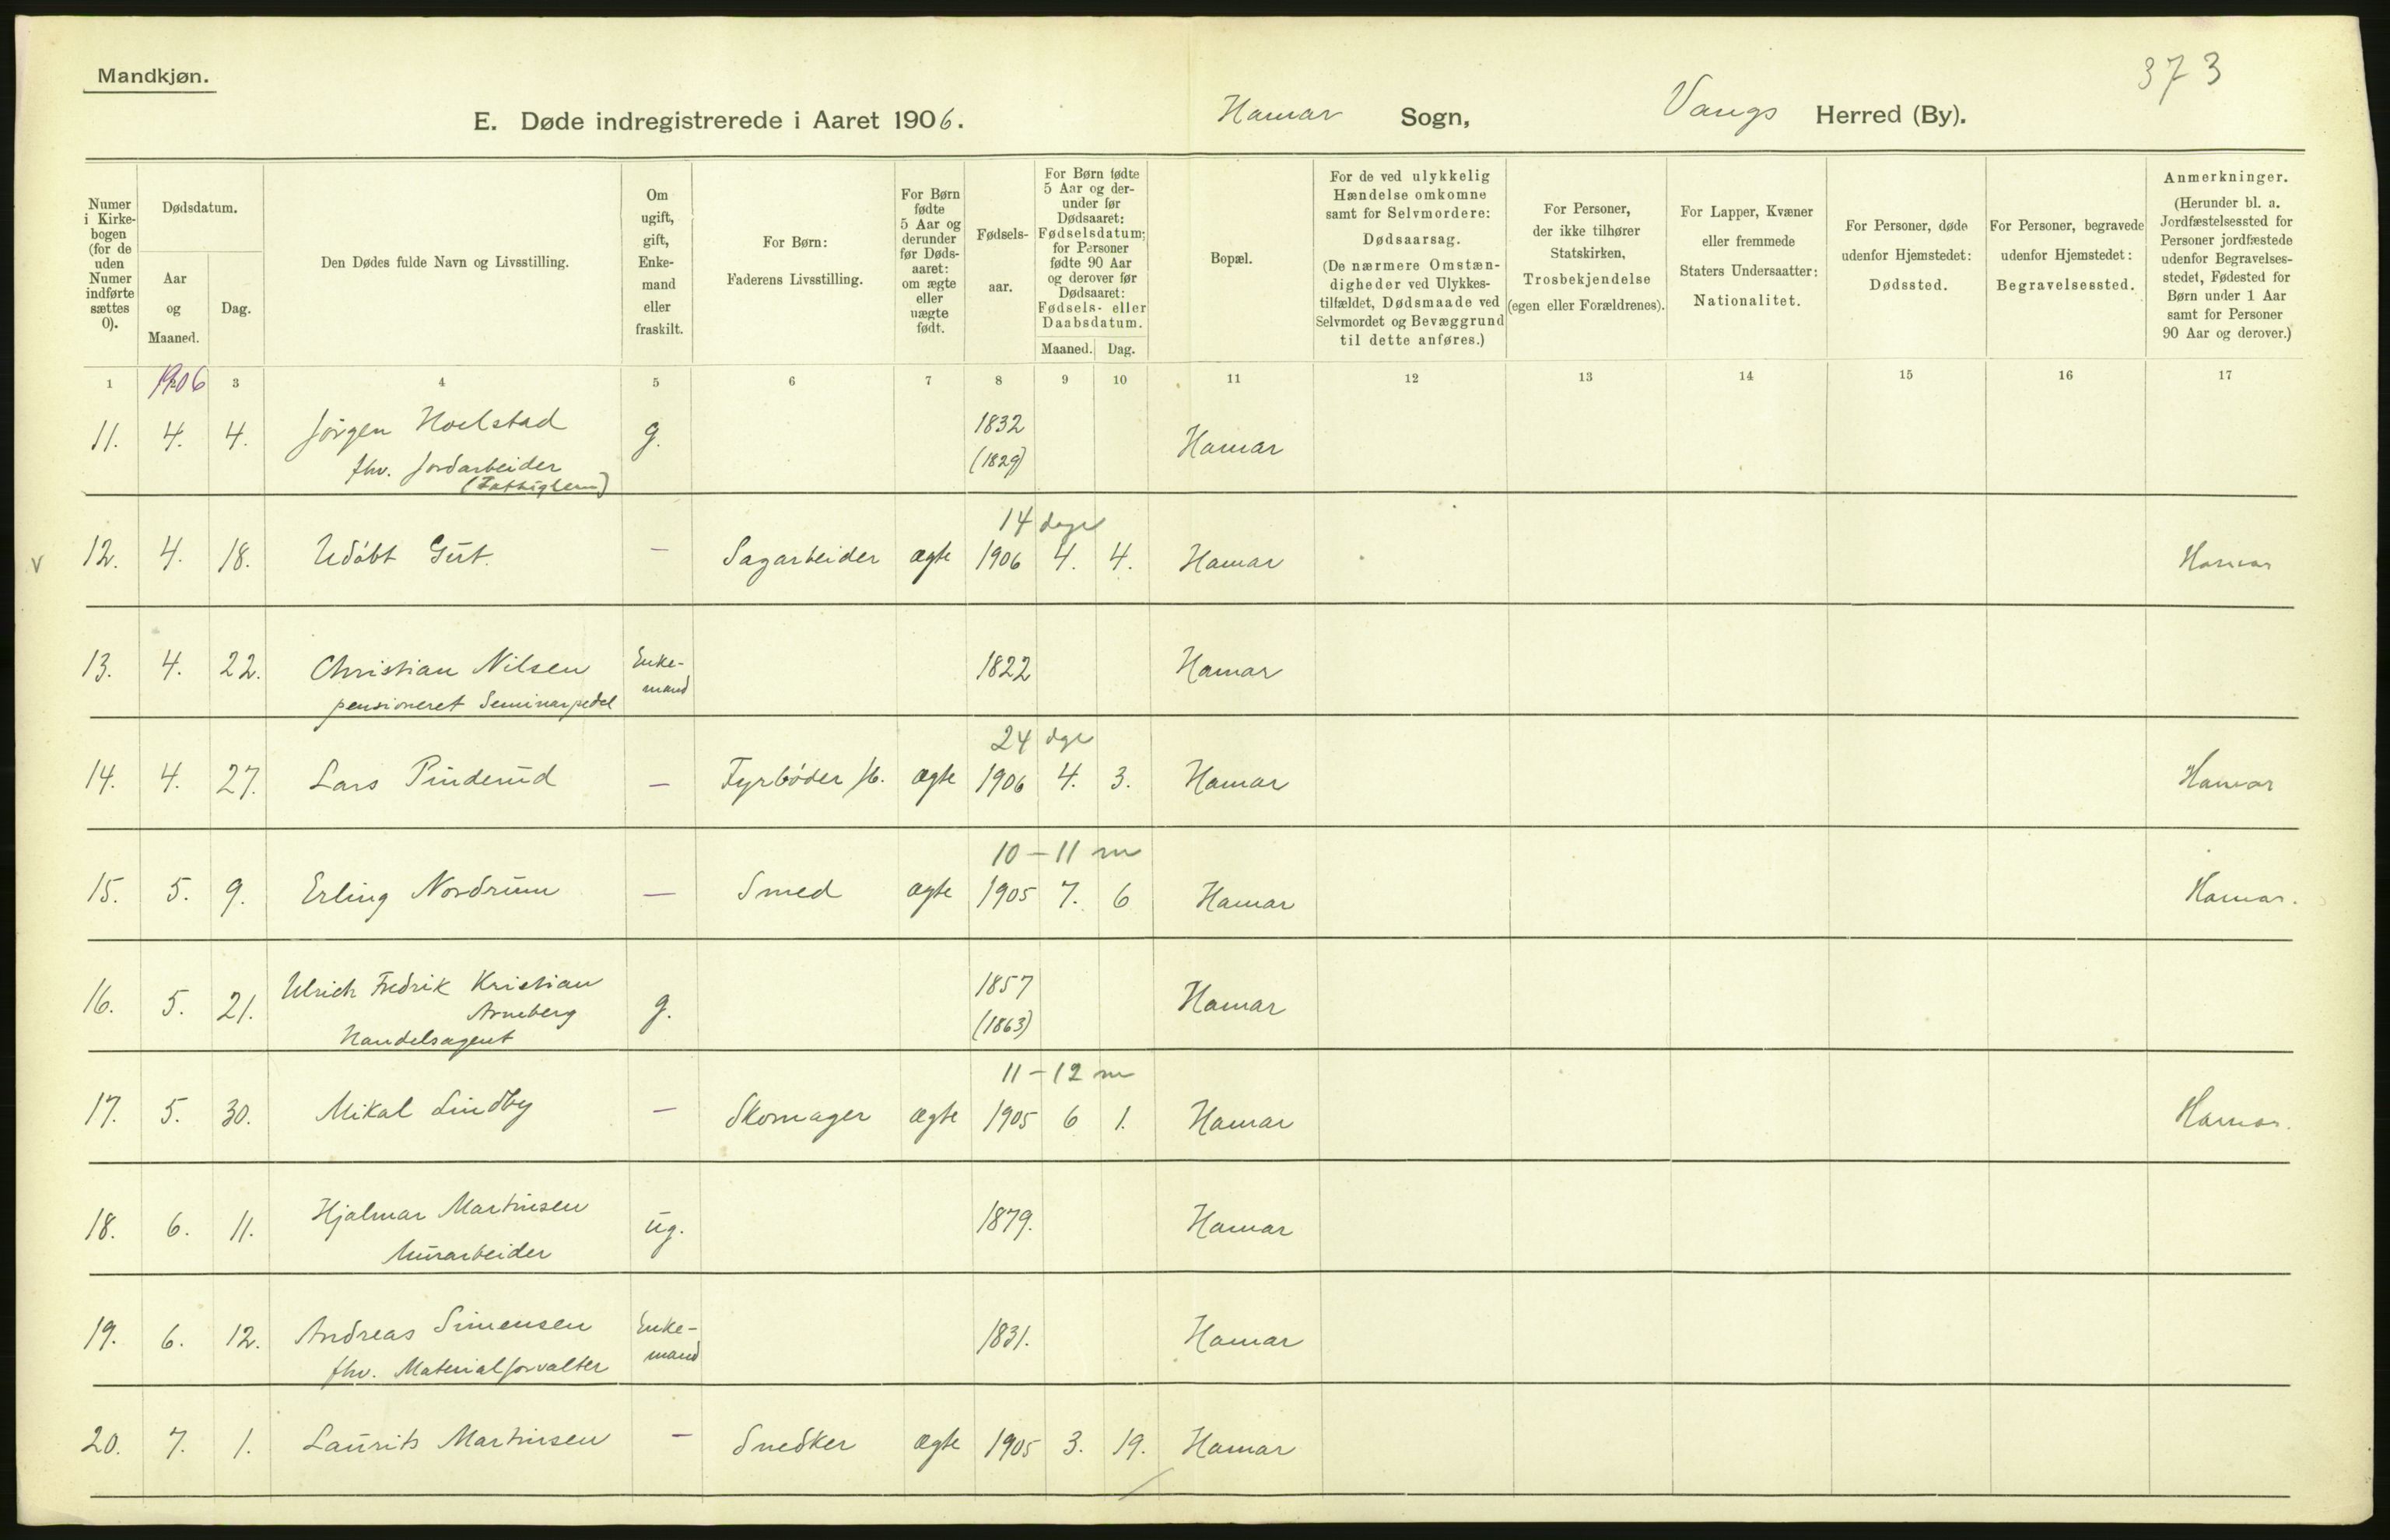 Mandkjøn.
373
E. Døde indregistrerede i Aaret 1906.
Hamar Sogn, Vangs Herred (By).
Numer i Kirkebogen (for de uden Numer indførte sættes 0).
Dødsdatum.
Aar og Maaned.
Dag.
Den Dødes fulde Navn og Livsstilling.
Om ugift, gift, Enkemand eller fraskilt.
For Børn: Faderens Livsstilling.
For Børn fødte 5 Aar og derunder før Dødsaaret: om ægte eller uægte født.
Fødselsaar.
For Børn fødte 5 Aar og derunder før Dødsaaret: Fødselsdatum; for Personer fødte 90 Aar og derover før Dødsaaret: Fødsels- eller Daabsdatum.
Maaned. Dag.
Bopæl.
For de ved ulykkelig Hændelse omkomne samt for Selvmordere: Dødsaarsag. (De nærmere Omstændigheder ved Ulykkestilfældet, Dødsmaade ved Selvmordet og Bevæggrund til dette anføres.)
For Personer, der ikke tilhører Statskirken, Trosbekjendelse (egen eller Forældrenes).
For Lapper, Kvæner eller fremmede Staters Undersaatter: Nationalitet.
For Personer, døde udenfor Hjemstedet: Dødssted.
For Personer, begravede udenfor Hjemstedet: Begravelsessted.
Anmerkninger. (Herunder bl. a. Jordfæstelsessted for Personer jordfæstede udenfor Begravelsesstedet, Fødested for Børn under 1 Aar samt for Personer 90 Aar og derover.)
1 1906 3 4 5 6 7 8 9 10 11 12 13 14 15 16 17
11. 4. 4. Jörgen Hoelstad g. 1832 Hamar
fhv. Jordarbeider (1829)
(Fattiglem)
14 dage
v 12. 4. 18. Udöbt Gut. — Sagarbeider ægte 1906 4. 4. Hamar Hamar
13. 4. 22. Christian Nilsen Enke- 1822 Hamar
pensioneret Seminarpedel mand
24 dge
14. 4. 27. Lars Pinderud — Fyrböder ægte 1906 4. 3. Hamar Hamar
10 – 11 m
15. 5. 9. Erling Nordrum — Smed ægte 1905 7. 6 Hamar Hamar.
16. 5. 21. Ulrich Fredrik Kristian g. 1857 Hamar
Arneberg (1863)
Handelsagent
11 – 12 m
17. 5. 30. Mikal Lindby — Skomager ægte 1905 6 1. Hamar Hamar.
18. 6. 11. Hjalmar Martinsen ug. 1879. Hamar
Murarbeider
19. 6. 12. Andreas Simensen Enke- 1831. Hamar
fhv. Materialforvalter mand
20. 7. 1. Laurits Martinsen — Snedker ægte 1905 3. 19. Hamar